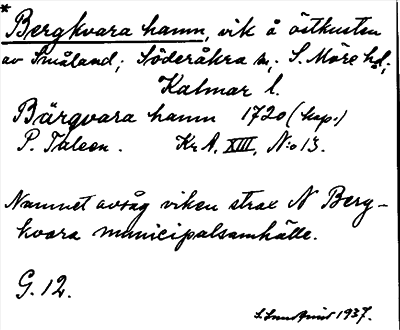 * Bergkvara hamn, vik å östkusten
av Småland; Söderåkra sn, S. Möre hd,
Kalmar l.
Bärgvara hamn 1720 (kop.)
P. Kr. A. XIII, No 13.
Namnet avsåg viken strax N Berg-
kvara municipalsamhälle.
G. 12.
1937.